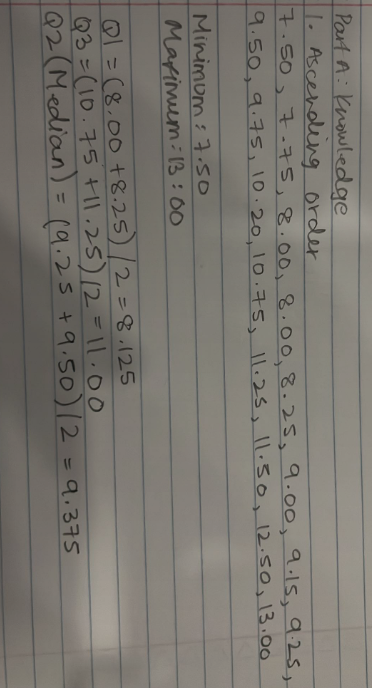 Part A: Knowledge
1. Ascending order
7.50, 7.75, 8.00, 8.00, 8.25, 9.00, 9.15, 9.25,
9.50, 9.75, 10.20, 10.75, 11.25, 11.50, 12.50, 13.00
Minimum: 7.50
Maximum: 13:00
Q1 = (8.00 + 8.25) / 2 = 8.125
Q3 = (10.75 + 11.25) / 2 = 11.00
Q2 (Median) = (9.25 + 9.50) / 2 = 9.375